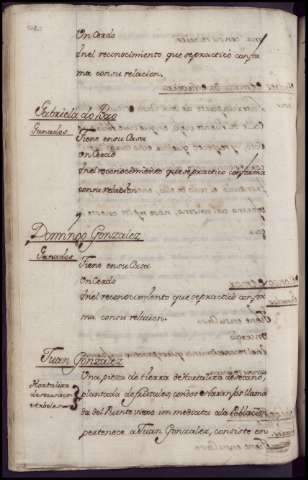 Un Cerdo
En el reconocimiento que se practicò confor
ma con su relacion.
Gabriela do Bao
Ganados
Tiene en su Casa
Un Cerdo
En el reconocimiento que se practico conforma
con su relacion
Domingo Gonzalez
Ganados
Tiene en su Casa
Un Cerdo
En el reconocimiento que se practicò confor
ma con su relacion.
Juan Gonzalez
Hortaliza
de secano
Una pieza de tierra de Hortaliza de secano,
plantada de frutales cerdos e naranjos llama
da del Puente viexo inmediata a la Poblacion
pertenece a Juan Gonzalez, consiste en